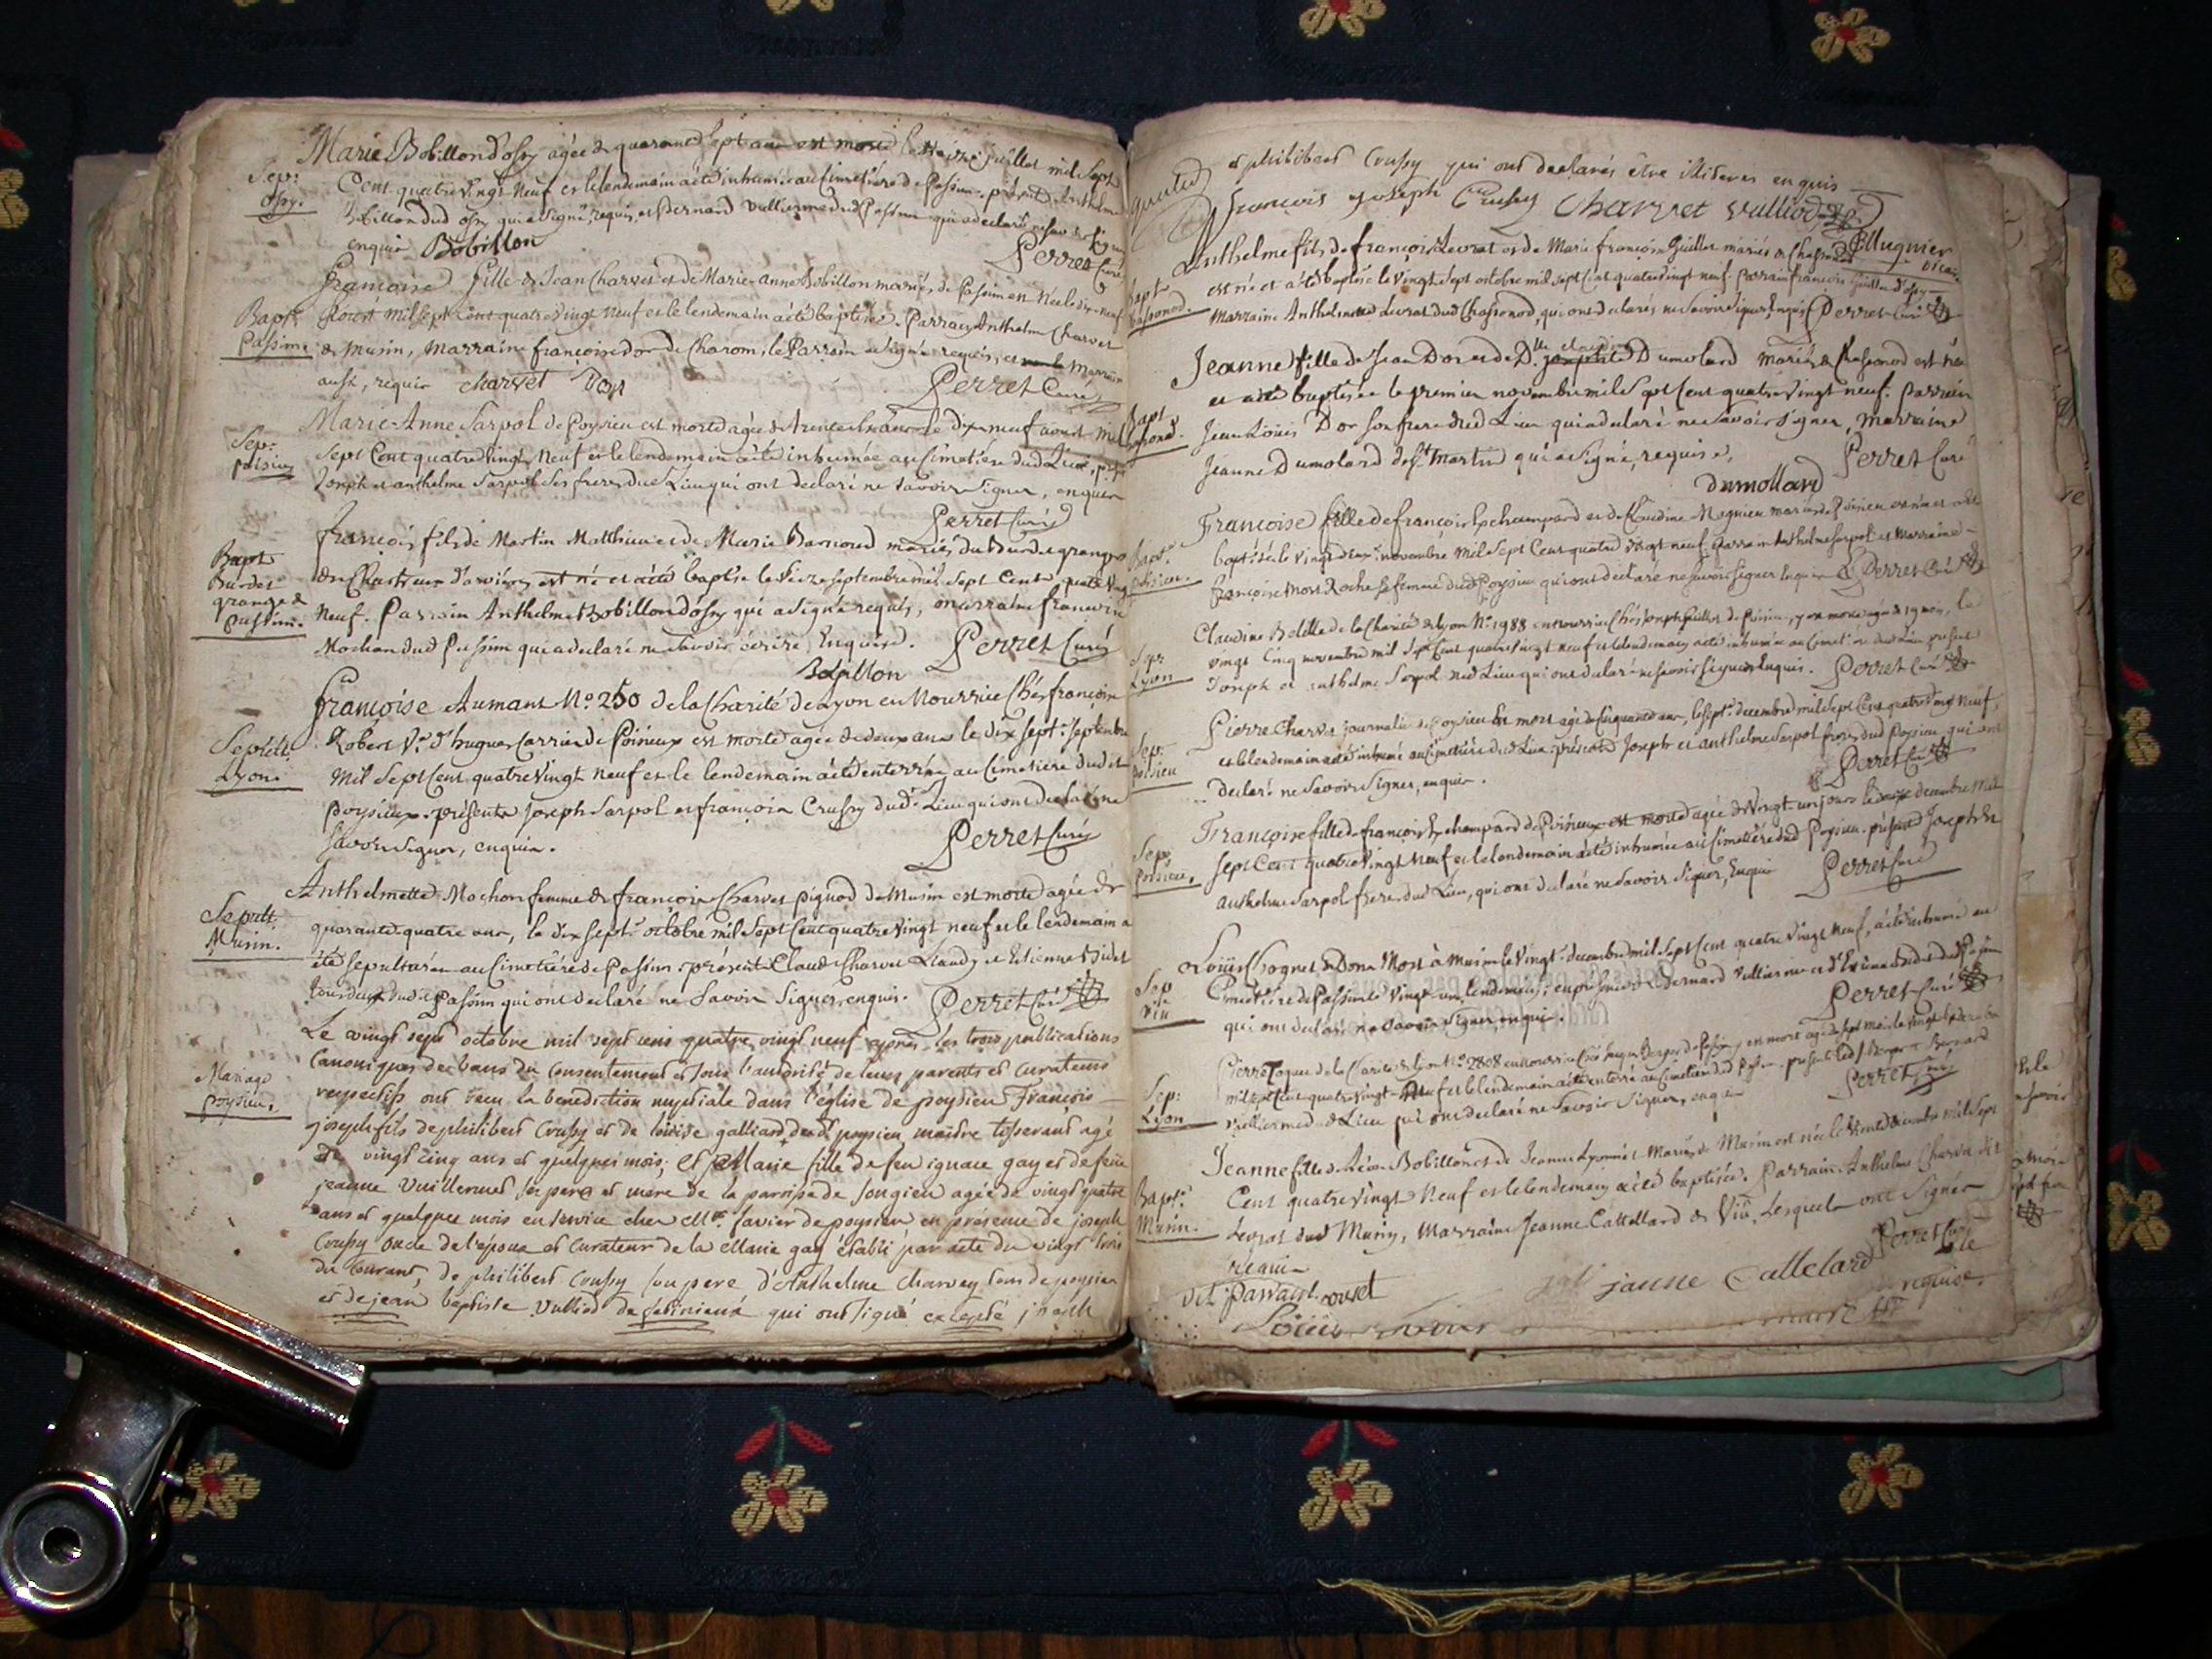 Marie Bobillon d'ossy agée de quarante sept ans est morte le treize juillet mil sept
Sep:
ossy.
Cent quatre vingt neuf et le lendemain a été inhumée au Cimetière de Passin. présents Anthelme
Bobillon dud ossy qui a signé, requis, et Bernard Vulliermed dud Passin qui a declaré ne savoir signer
enquis Bobillon
Perret Curé
Francoise fille de Jean Charvet et de Marie-Anne Bobillon mariés de Passin est née le dix-neuf
Bapt.
Passin.
Aoust mil sept Cent quatre vingt neuf et le lendemain a été baptisée. Parrain Anthelme Charvet
de Musin, Marraine francoise dor de Charom, le Parrain a signé requis, et la Marraine
aussi, requise charvet Dor
Perret Curé
Marie-Anne Sarpol de Poysieu est morte agée de trente ans le dix neuf aoust mil
Sep:
poisieu
Sept Cent quatre vingt Neuf et le lendemain a été inhumée au Cimetière dud Lieu, prests
Joseph et anthelme Sarpol ses freres dud Lieu qui ont declaré ne savoir signer, enquis
Perret Curé
francois fils de Martin Matthieu et de Marie Barnoud mariés du Bur des granges
Bapt
Bur des
granges de
Passin.
des Chartreux d'arvières est né et a été baptisé le seize septembre mil sept Cent quatre vingt
Neuf. Parrain Anthelme Bobillon d'ossy qui a signé requis, marraine francoise
Mochon dud Passin qui a declaré ne savoir écrire, Enquise. Perret Curé
Bobillon
françoise Aumant No. 250 de la Charité de Lyon en Nourrice Chés françoise
Sepult.
Lyon.
Robert Ve. d'hugues Carrier de Poisieux est morte agée de deux ans le dix sept. septembre
Mil Sept Cent quatre vingt neuf et le lendemain a été enterrée au Cimetiere dudit
Poysieux. présents Joseph Sarpol et françois Crussy dud. Lieu qui ont declaré ne
Savoir signer, enquis.
Perret Curé
Anthelmette Mochon femme de francois Charvet pignod de Musin est morte agée de
Sepult.
Musin.
quarante quatre ans, le dix sept. octobre mil Sept Cent quatre vingt neuf et le lendemain a
été sepulturée au Cimetière de Passin. présents Claude Charvet Liaudy et Etienne Bidet
tous deux dudit Passin qui ont declaré ne Savoir Signer, enquis. Perret Curé
Le vingt sept octobre mil sept cens quatre vingt neuf après les trois publications
Mariage
poysieu.
Canoniques de bans du consentement et sous l'autorité de leurs parents et curateurs
respectifs ont recu la benediction nuptiale dans l'église de poysieu François
joseph fils de philibert Crussy et de louise galliard, dud poysieu, maître tisserant agé
de vingt cinq ans et quelques mois; et Marie fille de feu ignace gay et de feüe
jeanne Vuillermet ses pere et mere de la paroisse de songieu agée de vingt quatre
ans et quelques mois en service chez Mr. Savier de poysieu en présence de joseph
Crussy oncle de l'époux et curateur de la Marie gay établi par acte du vingt trois
du courant, de philibert Crussy son pere d'Anthelme Charvey tous de poysieu
et de jean baptiste Vulliod de feurieux qui ont signé excepté joseph
et philibert Crussy qui ont declarés être illiterés enquis
françois joseph Crussy Charvet Vulliod
Mugnier
vicaire
Anthelme fils de françois Levrat et de Marie françoise Guillet mariés de Chassonod
Bapt
Chassonod.
est né et a été baptisé le vingt sept octobre mil sept Cent quatre vingt neuf. Parrain francois Guillet d'ossy
Marraine Anthelmette Levrat dud Chassonod, qui ont declarés ne savoir signer, Enquis Perret Curé
Jeanne fille de Jean Dor et de Dlle. Claudine Dumolard mariés de Chassonod est née
Bapt
Chassonod.
et a été baptisée le premier novembre mil sept Cent quatre vingt neuf. Parrain
Jean Loüis Dor son frere dud Lieu qui a declaré ne savoir signer, Marraine
Jeanne Dumolard de St. Martin qui a signé, requise,
Perret Curé
Dumollard
Françoise fille de françois Lychampard et de Claudine Magnieu mariés de Poisieu est née et a été
Bapt.
poisieu.
baptisée le vingt deux. novembre mil Sept Cent quatre vingt neuf. Parrain Anthelme Sarpol et Marraine
françoise Mont Roche sa femme dud Poysieu qui ont declaré ne savoir signer Enquis Perret Curé
Claudine Belille de la Charité de Lyon No. 1988 en nourrice Chés Joseph Guillot de Poisieu, y est morte agée de 19 mois, le
Sep:
Lyon
vingt Cinq novembre mil Sept Cent quatre vingt neuf et le lendemain a été inhumée au Cimetière dud Lieu present
Joseph et anthelme Sarpol dud Lieu qui ont declaré ne savoir signer Enquis. Perret Curé
Pierre Charvet journalier de Poysieu Est mort agé de Cinquante ans, le sept. decembre mil Sept Cent quatre vingt neuf,
Sep:
poisieu
et le lendemain a été inhumé au Cimetière dud Lieu. présents Joseph et anthelme Sarpol freres dud Poysieu, qui ont
declaré ne Savoir Signer, enquis.
Perret Curé
Françoise fille de françois Lychampard de Poisieux est morte agée de Vingt un jours le decembre mil
Sep:
poisieu.
Sept Cent quatre vingt Neuf et le lendemain a été inhumée au Cimetière dud Poysieu. présents Joseph &
anthelme Sarpol freres dud Lieu, qui ont declaré ne Savoir Signer, Enquis Perret Curé
Loüis Cognet de Don Mort à Musin le Vingt. decembre mil sept Cent quatre vingt Neuf, a été inhumé au
Sep
Viu
Cimetière de Passin le vingt un, lendemain, en présence de Bernard Vulliermed et d'Etienne Bidet dud Passin
qui ont declaré ne savoir signer, enquis.
Perret Curé
Pierre Toquet de la Charité de Lyon No. 2808 en nourrice Chés hugues Berger de Passin y est mort agé de sept mois le vingt
Sep:
Lyon
mil sept Cent quatre vingt Neuf et le lendemain a été enterré au Cimetière dud Passin. présents led Berger et Bernard
Vulliermed dud Lieu qui ont declaré ne Savoir Signer, enquis Perret Curé
Jeanne fille de Léon Bobillon et de Jeanne Lyonnet Mariés de Musin est née le trente decembre mil Sept
Bapt.
Musin.
Cent quatre vingt Neuf et le lendemain a été baptisée. Parrain Anthelme Charvet dit
Levrat dud Musin, Marraine Jeanne Cattellard de Viü. Lesquels ont Signés
requis
Perret Curé
janne Cattelard
requise.